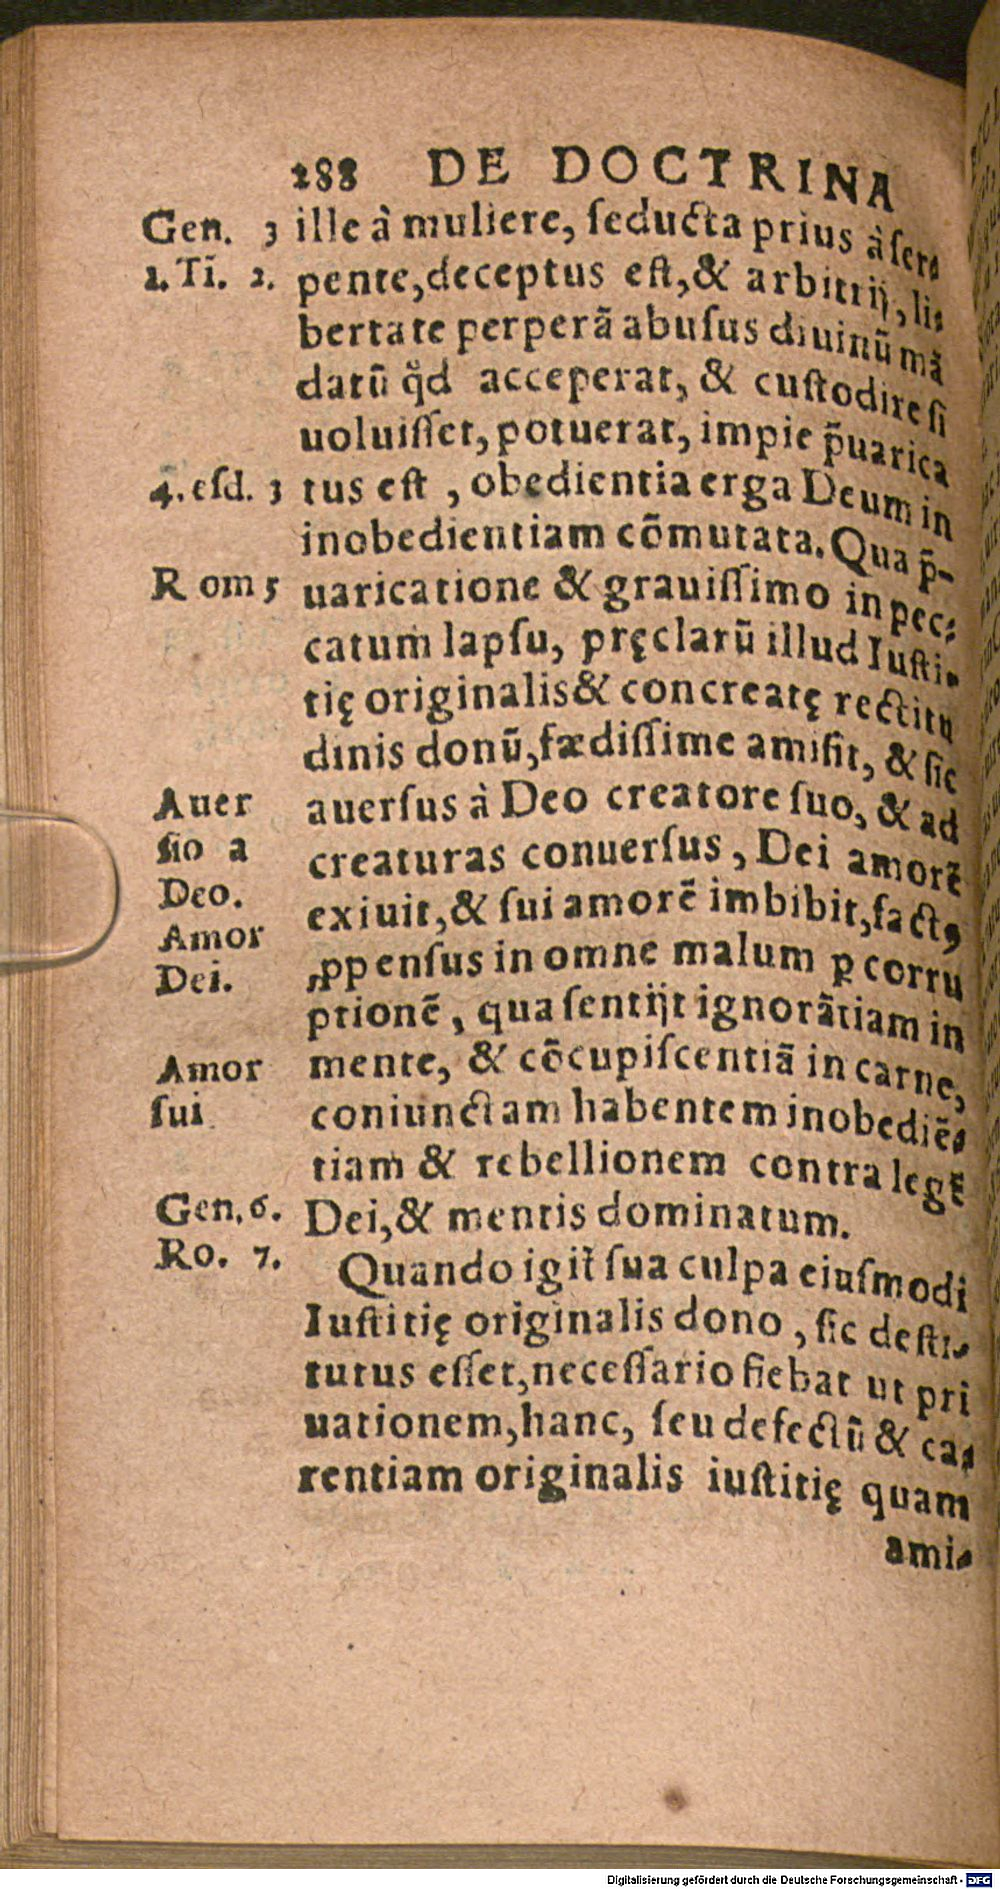 288 DE DOCTRINA
Gen. 3 ille à muliere, ſeducta prius à ſer⸗
1. Tĩ. 2. pente, deceptus eſt, & arbitrij, li⸗
bertate perperã abuſus diuinũ mã
datũ q̃d acceperat, & cuſtodire ſi
uoluiſſet, potuerat, impie p̃uarica
4. eſd. 3 tus eſt, obedientia erga Deum in
inobedientiam cõmutata. Qua p̃-
Rom 5 uaricatione & grauiſſimo in pec⸗
catum lapſu, pręclarũ illud Iuſti⸗
tię originalis & concreatę rectitu
dinis donũ, fædiſſime amiſit, & ſic
Auer auerſus à Deo creatore ſuo, & ad
ſio a creaturas conuerſus, Dei amorẽ
Deo. exiuit, & ſui amorẽ imbibit, factꝰ
Amor
Dei. ꝓpenſus in omne malum ꝑ corru
ptionẽ, qua ſentijt ignorãtiam in
Amor mente, & cõcupiſcentiã in carne,
ſui coniunctam habentem inobediẽ⸗
tiam & rebellionem contra legẽ
Gen. 6. Dei, & mentis dominatum.
Ro. 7. Quando igit̃ ſua culpa eiuſmodi
Iuſtitię originalis dono, ſic deſti⸗
tutus eſſet, neceſſario fiebat ut pri
uationem, hanc, ſeu defectũ & ca⸗
rentiam originalis iuſtitię quam
ami⸗
Digitalisierung gefördert durch die Deutsche Forschungsgemeinschaft - DFG